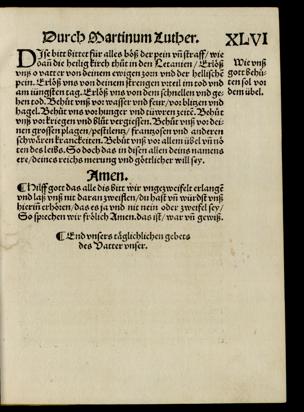 Durch Martinum Luther. XLVI
Dise bitt bittet für alles böß der pein vñ straff/ wie
dañ die heilig kirch thůt in den Letanien/ Erlöß
vns o vatter von deinem ewigen zorn vnd der hellischē
pein. Erlöß vns von deinem strengen vrteil im tod vnd
am iüngsten tag. Erlöß vns von dem schnellen vnd ge-
hen tod. Behüt vns vor wasser vnd feur/ vor blitzen vnd
hagel. Behüt vns vor hunger vnd tüwren zeitē. Behüt
vns vor kriegen vnd Blůt vergiessen. Behüt vns vor dei-
nen grossen plagen/ pestilentz/ frantzosen vnd anderen
schwären kranckeiten. Behüt vns vor allem übel vñ nö
ten des leibs. So doch das in disen allen deins namens
ere/ deines reichs merung vnd göttlicher will sey.
Wie vnß
gott behü-
ten sol vor
dem übel.
Amen.
¶ Hilff gott das alle dis Bitt wir vngezweifelt erlangē
vnd laß vnß nit daran zweiflen/ du hast vñ würdst vnß
hierin̄ erhören/ das es ja vnd nit nein oder zweifel sey/
So sprechen wir frölich Amen. das ist/ war vñ gewiß.
¶ End vnsers täglichlichen gebets
des Vatter vnser.